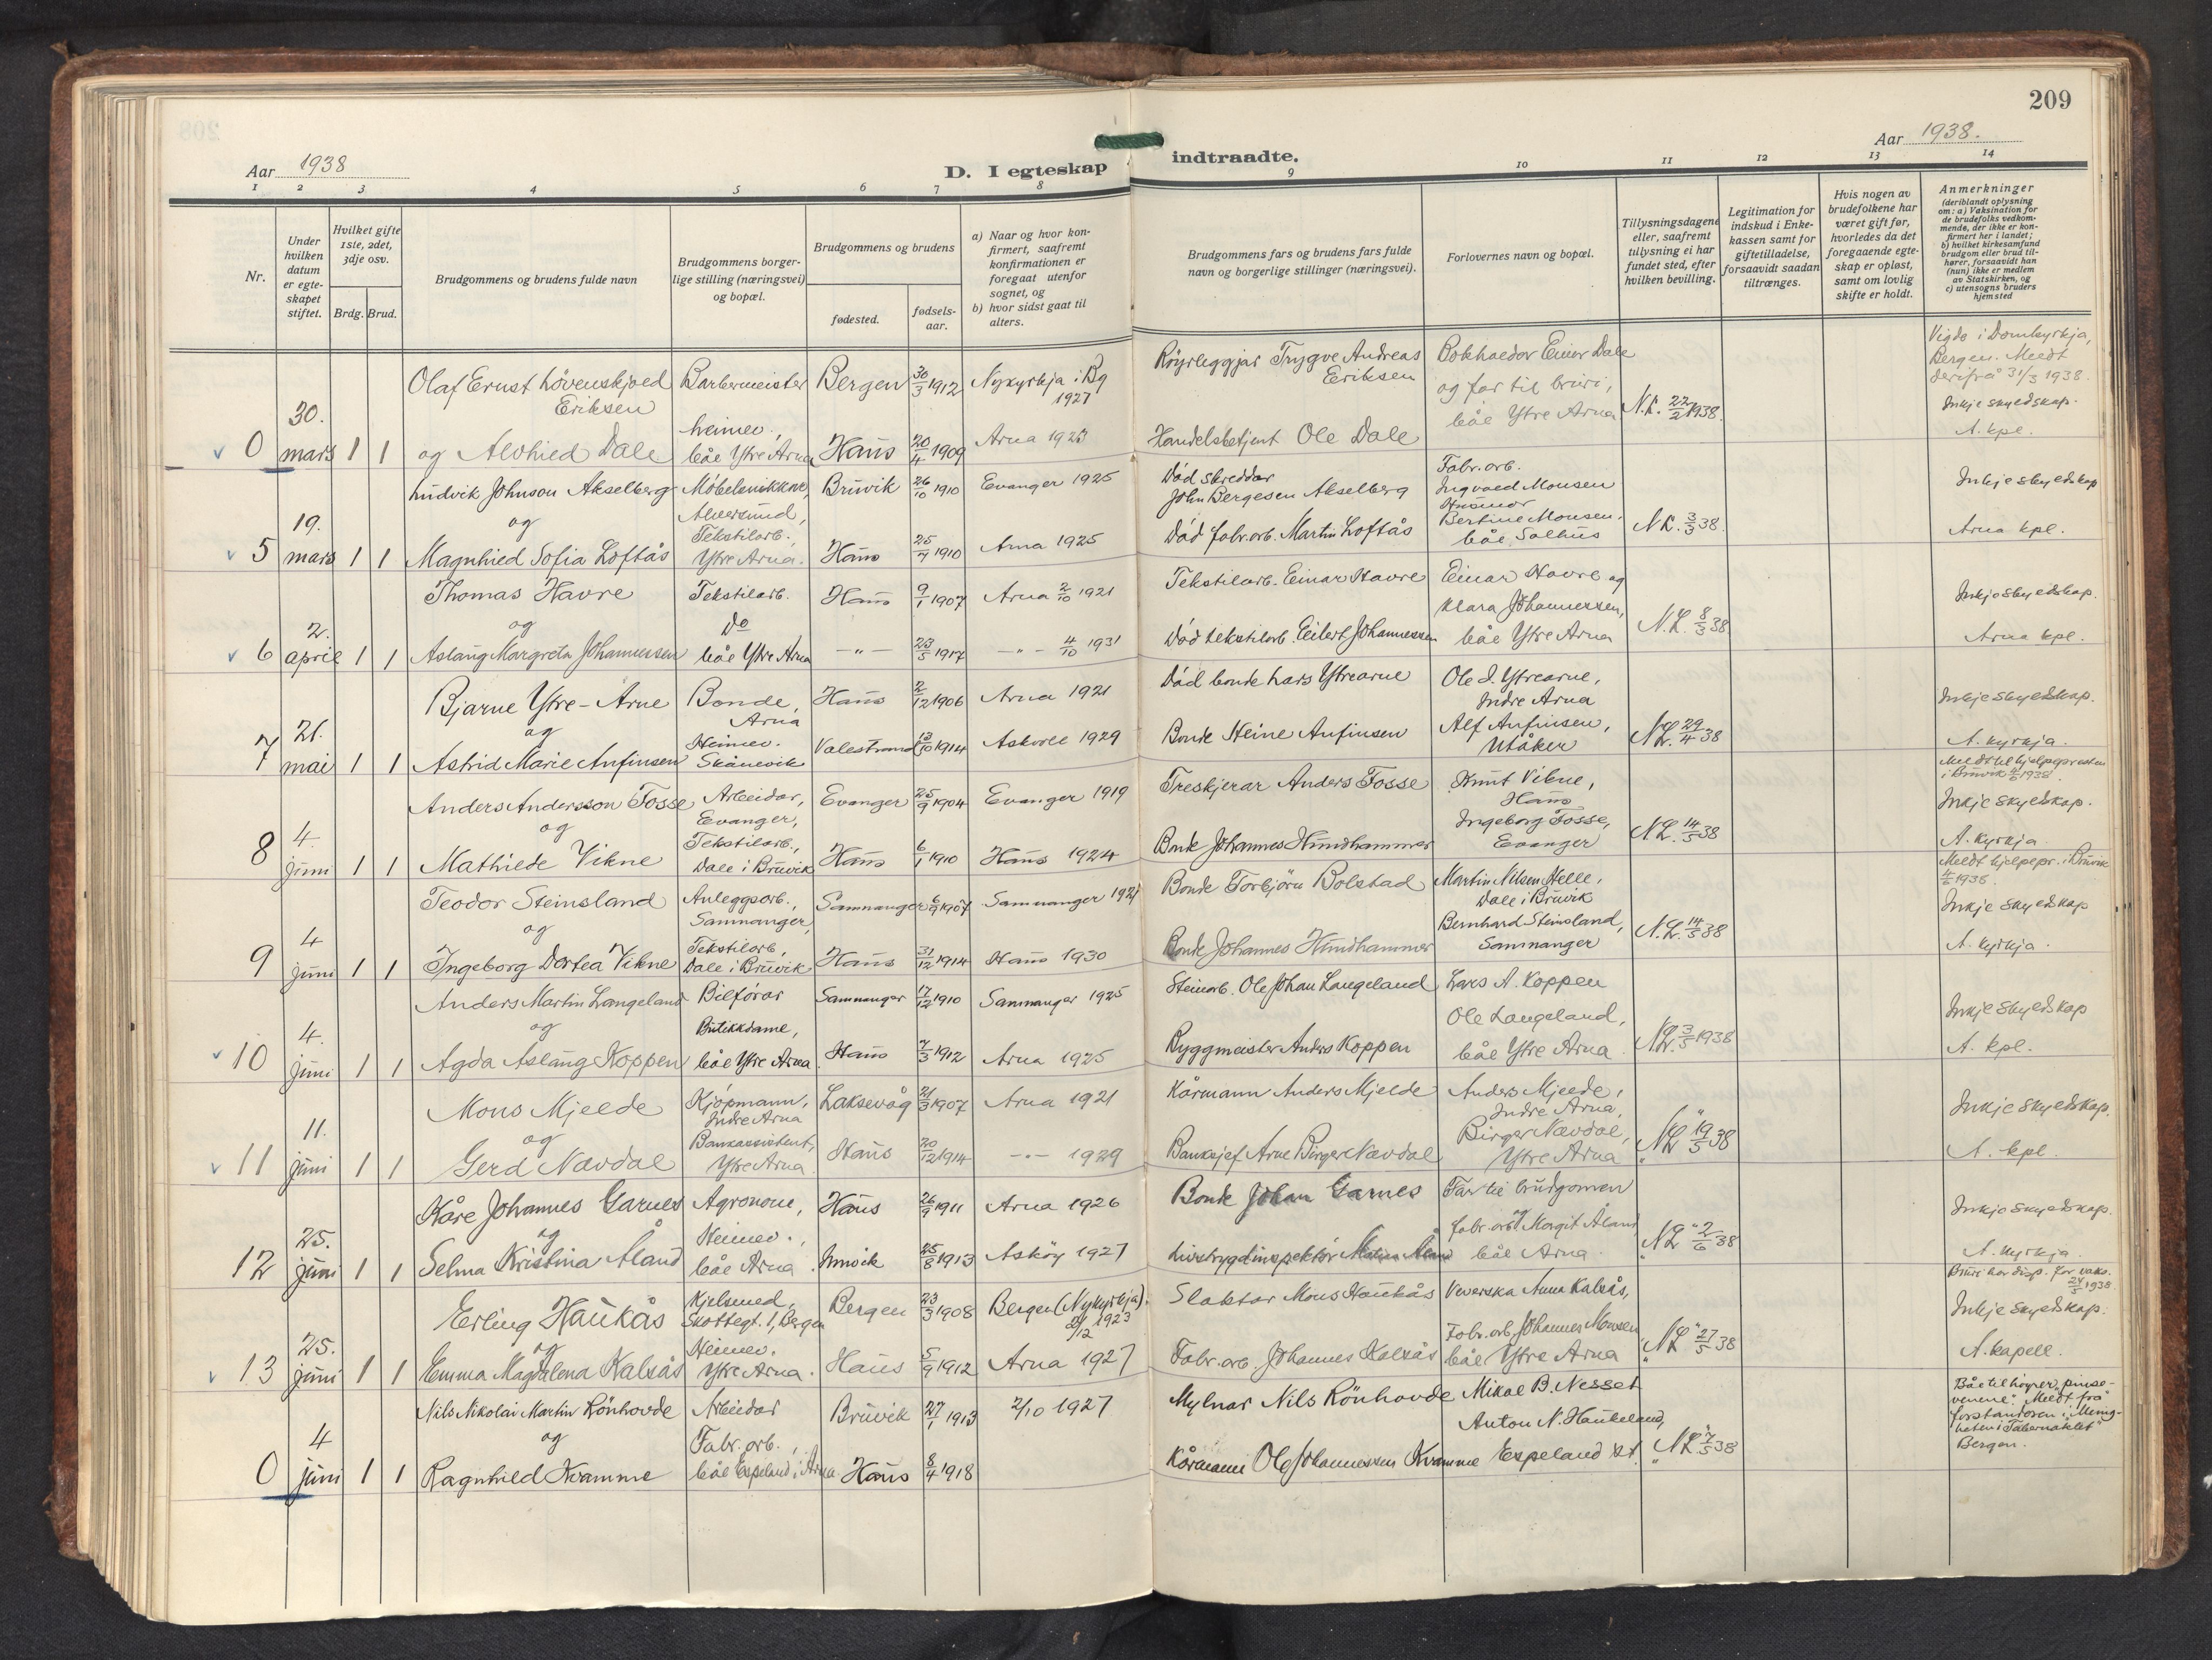 209
Aar 1938
Aar 1938.
D. I egteskap indtraadte.
1 2 3 4 5 6 7 8 9 10 11 12 13 14
Nr.
Under hvilken datum er egteskapet stiftet.
Hvilket gifte 1ste, 2det, 3dje osv.
Brdg. Brud.
Brudgommens og brudens fulde navn
Brudgommens borgerlige stilling (næringsvei) og bopæl.
Brudgommens og brudens
fødested.
fødselsaar.
a) Naar og hvor konfirmert, saafremt konfirmationen er foregaat utenfor sognet, og
b) hvor sidst gaat til alters.
Brudgommens fars og brudens fars fulde navn og borgerlige stillinger (næringsvei).
Forlovernes navn og bopæl.
Tillysningsdagene eller, saafremt tillysning ei har fundet sted, efter hvilken bevilling.
Legitimation for indskud i Enkekassen samt for giftetilladelse, forsaavidt saadan tiltrænges.
Hvis nogen av brudefolkene har været gift før, hvorledes da det foregaaende egteskap er opløst, samt om lovlig skifte er holdt.
Anmerkninger
(deriblandt oplysning om: a) Vaksination for de brudefolks vedkommende, der ikke er konfirmert her i landet; b) hvilket kirkesamfund brudgom eller brud tilhører, forsaavidt han (hun) ikke er medlem av Statskirken, og c) utensogns bruders hjemsted
0 30. mars 1 1
Olaf Ernst Løvenskjold Eriksen
og Alvhild Dale
Barbermeister
heimev.,
båe Ytre Arna
Bergen 30/3 1912 Nykyrkja i Bg 1927
Haus 20/4 1909 Arna 1923
Røyrleggjar Trygve Andreas Eriksen
Handelsbetjent Ole Dale
Bokhaldar Einar Dale
og far til bruri,
båe Ytre Arna
N.L. 22/2 1938.
Vigde i Domkyrkja,
Bergen. Meldt
derifrå 31/3 1938.
Inkje skyldskap.
A. kpl.
5 19. mars 1 1
Ludvik Johnson Akselberg
og
Magnhild Sofia Loftås
Møbelsnikkar,
Alversund,
Tekstilarb.,
Ytre Arna.
Bruvik 26/10 1910 Evanger 1925
Haus 25/7 1910 Arna 1925
Død skreddar
John Bergesen Akselberg
Død fabr.arb. Martin Loftås
Fabr.arb.
Ingvald Monsen
Husmor
Bertine Monsen,
båe Salhus
N.L. 3/3 38.
Inkje skyldskap
Arna kpl.
6 2. april 1 1
Thomas Havre
og
Aslaug Margreta Johannessen
Tekstilarb.
Do
båe Ytre Arna
Haus 9/1 1907 Arna 2/10 1921
-"- 23/5 1917 -"- 4/10 1931
Tekstilarb. Einar Havre
Død tekstilarb. Eilert Johannessen
Einar Havre og
Klara Johannessen,
båe Ytre Arna
N.L. 8/3 38
Inkje skyldskap.
Arna kpl.
7 21. mai 1 1
Bjarne Ytre-Arne
og
Astrid Marie Anfinsen
Bonde,
Arna
Heimev.
Skånevik
Haus 2/12 1906 Arna 1921
Valestrand 13/10 1914 Askvoll 1929
Død bonde Lars Ytrearne
Bonde Steine Anfinsen
Ole I. Ytrearne,
Indre Arna
Alf Anfinsen,
Utåker
N.L. 29/4 38
Inkje skyldskap.
A. kyrkja.
8 4. juni 1 1
Anders Andersson Fosse
og
Mathilde Vikne
Arbeidar,
Evanger,
Tekstilarb.,
Dale i Bruvik
Evanger 25/9 1904 Evanger 1919
Haus 6/1 1910 Haus 1924
Treskjerar Anders Fosse
Bonde Johannes Hundhammer
Knut Vikne,
Haus
Ingeborg Fosse,
Evanger
N.L. 14/5 38
Meldt til hjelpepresten
i Bruvik 4/6 1938.
Inkje skyldskap.
A. kyrkja.
9 4 juni 1 1
Teodor Steinsland
og
Ingeborg Dortea Vikne
Anleggsarb.,
Samnanger,
Tekstilarb,
Dale i Bruvik
Samnanger 6/9 1907 Samnanger 1921
Haus 31/12 1914 Haus 1930
Bonde Torbjörn Bolstad
Bonde Johannes Hundhammer
Martin Nilsen Helle,
Dale i Bruvik
Bernhard Steinsland,
Samnanger
N.L. 14/5 38
Meldt hjelpepr. i Bruvik
4/6 1938.
Inkje skyldskap
A. kyrkja.
10 4. juni 1 1
Anders Martin Langeland
og
Agda Aslaug Koppen
Bilførar
Butikkdame,
båe Ytre Arna
Samnanger 17/12 1910 Samnanger 1925
Haus 7/3 1912 Arna 1925
Steinarb. Ole Johan Langeland
Byggmeister Anders Koppen
Lars A. Koppen
Ole Langeland,
båe Ytre Arna
N.L. 3/5 1938
Inkje skyldskap
A. kpl.
11 11. juni 1 1
Mons Mjelde
og
Gerd Nævdal
Kjøpmann,
Indre Arna
Bankassistent,
Ytre Arna
Laksevåg 21/3 1907 Arna 1921
Haus 20/12 1914 -"- 1929
Kårmann Anders Mjelde
Banksjef Arne Birger Nævdal
Anders Mjelde,
Indre Arna,
Birger Nævdal,
Ytre Arna
N.L. 19/5 38
Inkje skyldskap.
A. kpl.
12 25. juni 1 1
Kåre Johannes Garnes
og
Selma Kristina Åland
Agronom,
Heimev.,
båe Arna
Haus 26/9 1911 Arna 1926
25/8 1913 Askøy 1927
Bonde Johan Garnes
Far til brudgomen
fabr.arb. Margit Åland
båe Arna.
N.L. 2/6 38
Inkje skyldskap.
A. kyrkja
13 25. juni 1 1
Erling Haukås
og
Emma Magdalena Kalsås
Kjelsmed,
Skottegt. 1, Bergen
Heimev.
Ytre Arna.
Bergen 23/3 1908 Bergen (Nykyrkja) 2/12 1923
Haus 5/9 1912 Arna 1927
Slaktar Mons Haukås
Fabr.arb. Johannes Kalsås
Veverska Anna Kalsås,
Fabr.arb. Johannes Monsen
båe Ytre Arna
N.L. 27/5 38
Bruri har disp. for vaks.
24/5 1938
Inkje skyldskap.
A. kapell.
0 4 juni 1 1
Nils Nikolai Martin Rönhovde
og
Ragnhild Kvamme
Arbeidar
Fabr.arb.,
båe Espeland i Arna
Bruvik 27/1 1913 2/10 1927
Haus 8/4 1918
Mylnar Nils Rönhovde
Kårmann Ole Johannessen Kvamme
Mikal B. Nesset
Anton N. Haukeland,
Espeland st.
N.L. 7/5 38
Båe tilhøyrer "pinsevenene". Meldt frå
forstandaren i "Menigheten i Tabernaklet"
Bergen.